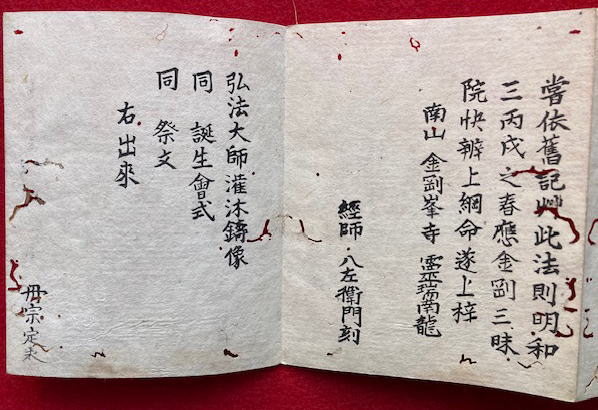 當依舊記艸此法則明和
三丙戌之春應金剛三昧
院快辨上綱命遂上梓
南山 金剛峯寺 靈瑞南龍
經師 八左衞門刻
弘法大師灌沐鑄像
同 誕生會式
同 祭文
右出來